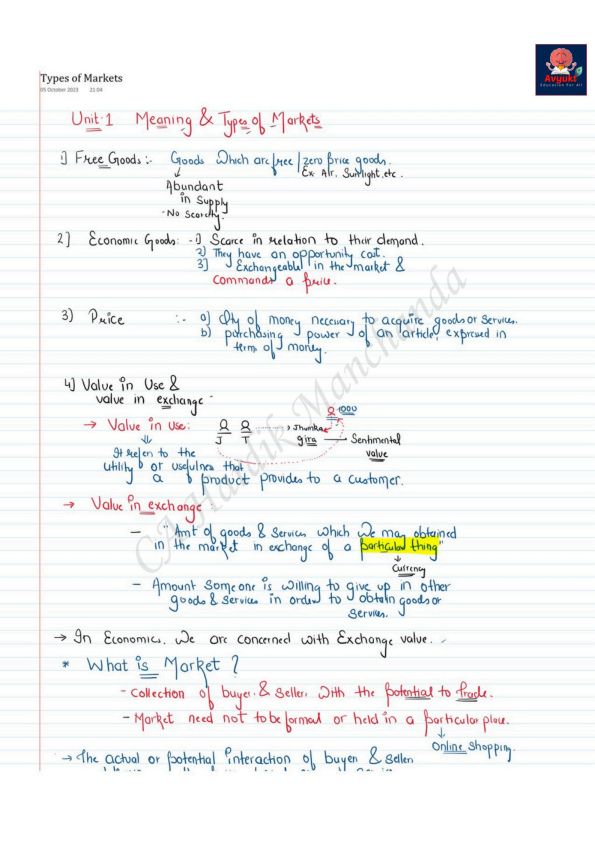 Avyukt
Education For All
Types of Markets
05 October 2023 21:04
Unit-1 Meaning & Types of Markets
1) Free Goods :- Goods which are free/zero price goods.
Ex Air, Sunlight, etc.
Abundant
in Supply
- No Scarcity
2] Economic Goods: - 1) Scarce in relation to their demand.
2) They have an opportunity cost.
3) Exchangeable in the market &
commands a price.
3) Price :- a) Qty of money necessary to acquire goods or services.
b) purchasing power of an article, expressed in
term of money.
4) Value in Use &
value in exchange -
→ Value in use:
1000
J T Jhumka
gira Sentimental
value
It refers to the
utility or usefulness that
a product provides to a customer.
→ Value in exchange :
- "Amt of goods & Services which we may obtained
in the market in exchange of a particular thing"
Currency
- Amount someone is willing to give up in other
goods & services in order to obtain goods or
services.
→ In Economics, We are concerned with Exchange value.
* What is Market ?
- Collection of buyer & Seller with the potential to trade.
- Market need not to be formal or held in a particular place.
Online Shopping.
→ The actual or potential interaction of buyer & Seller
CA Hardik Manchanda